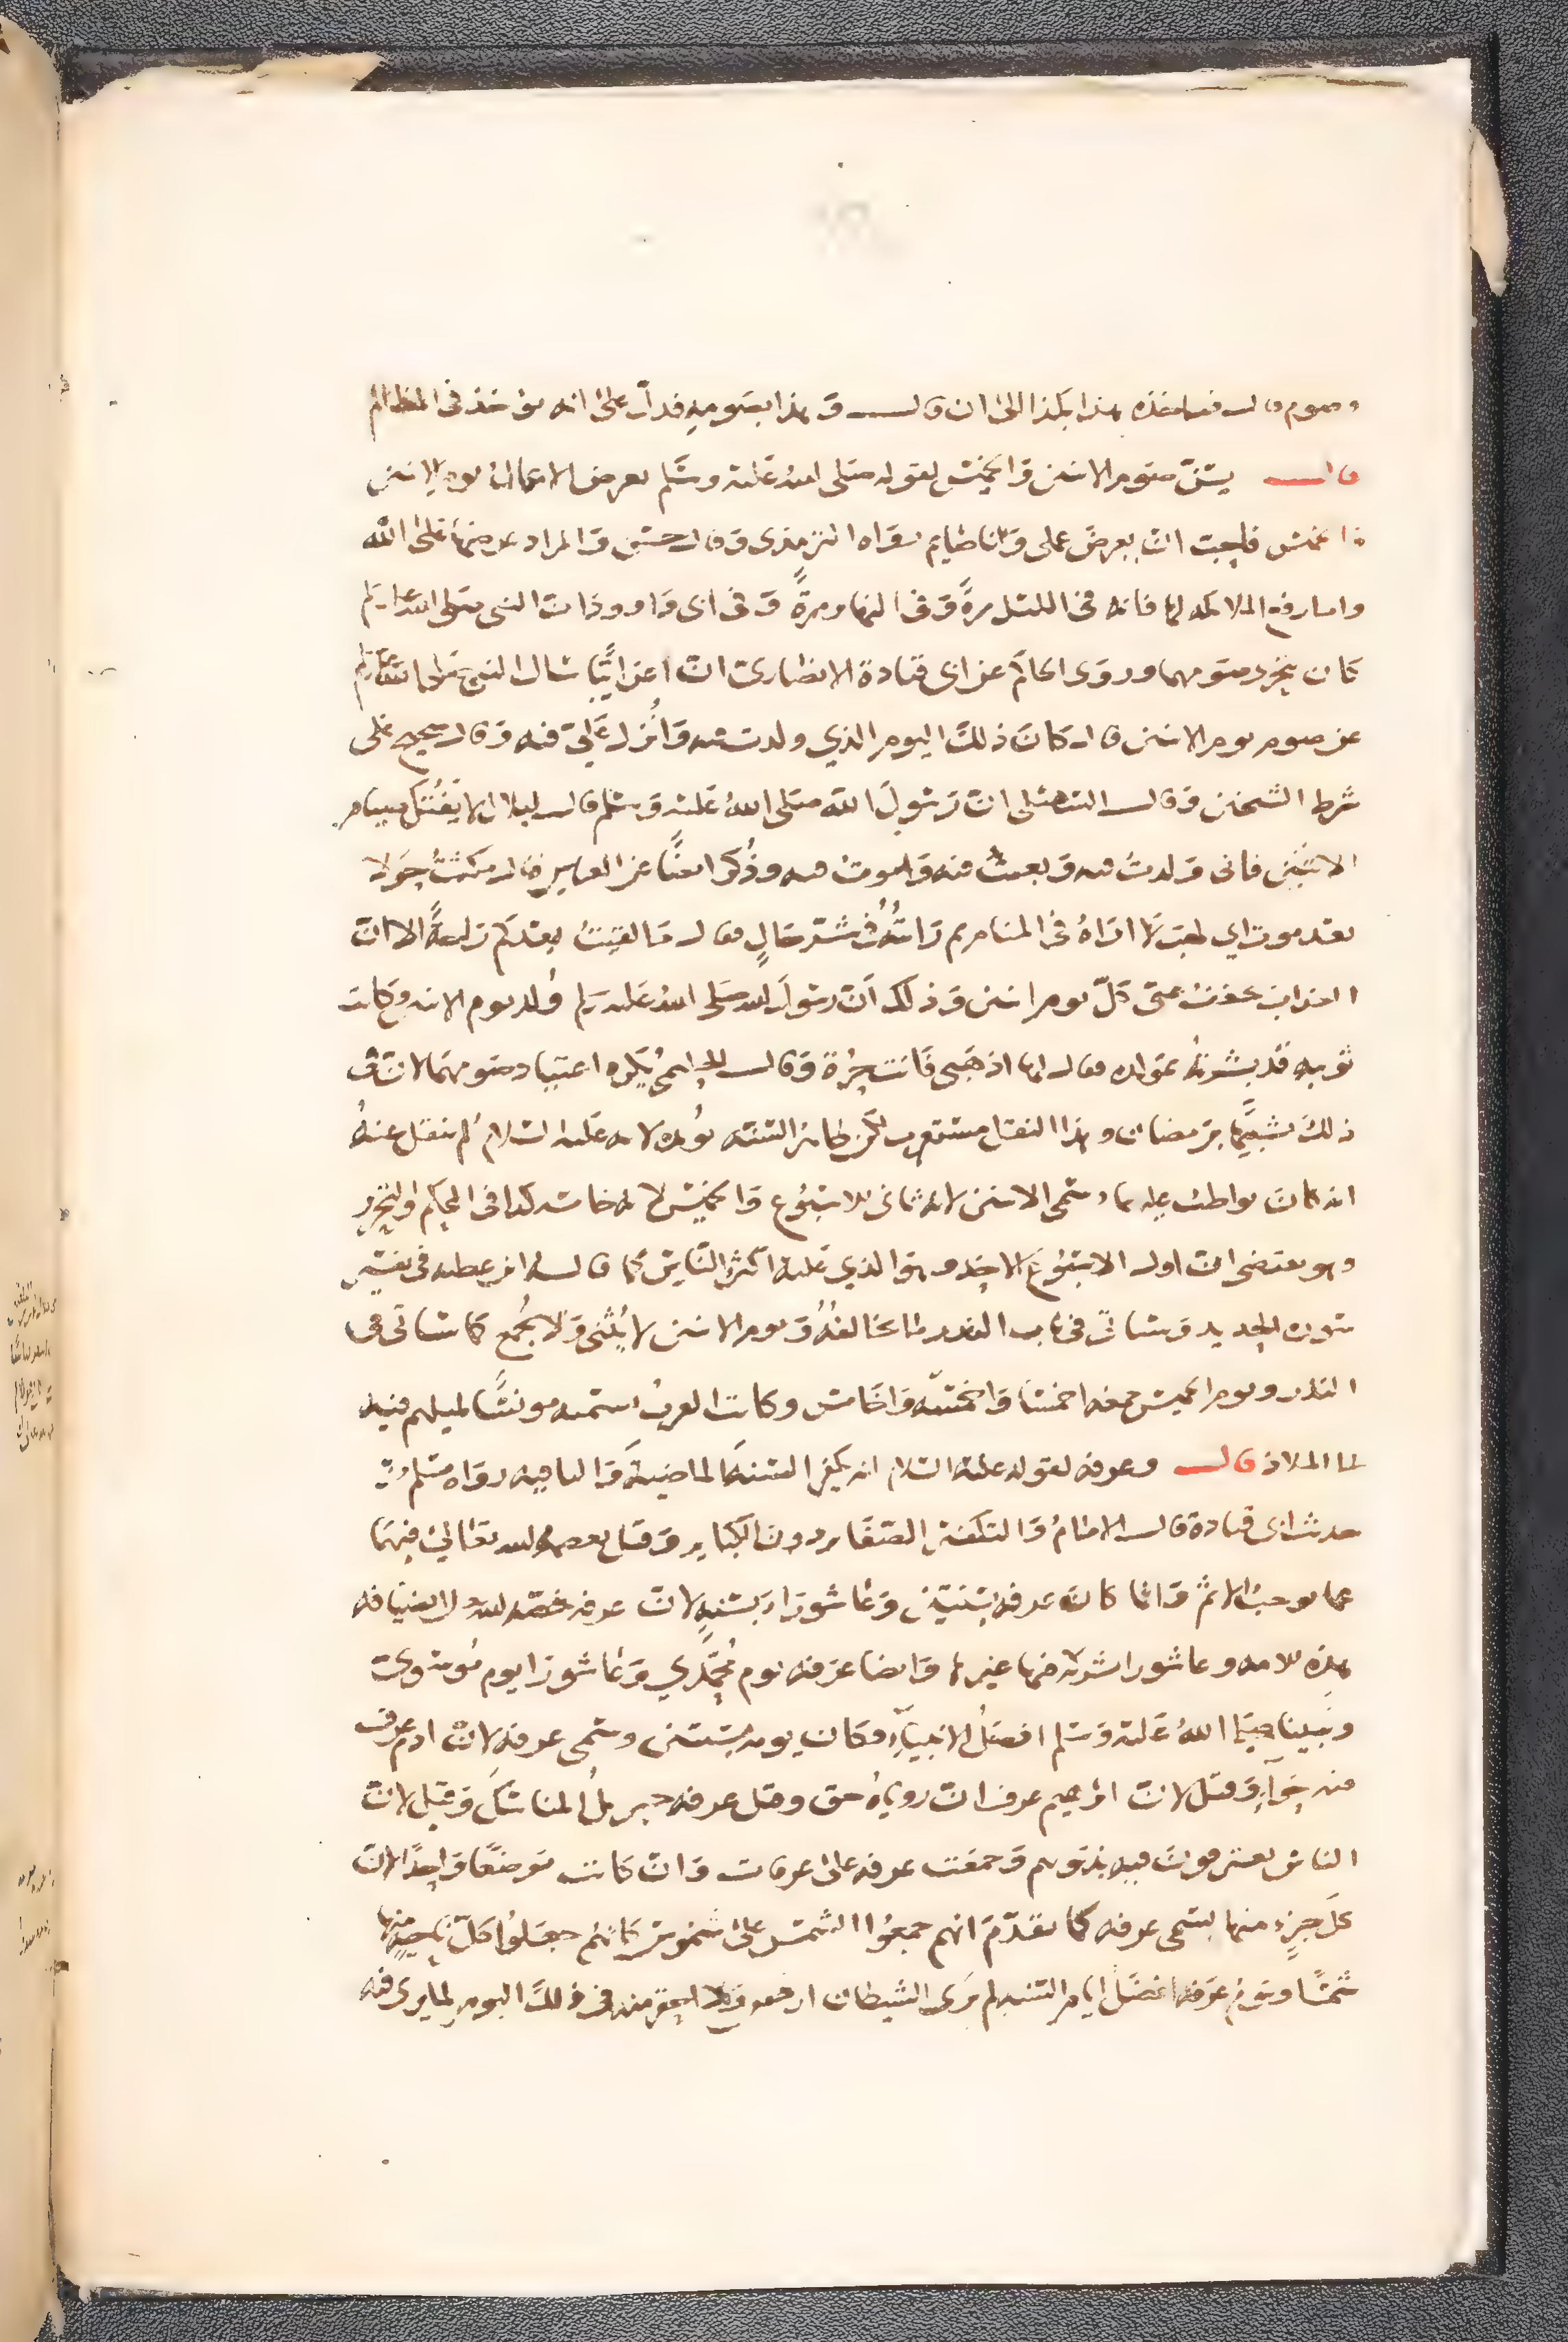 وصوم قال فيأخذ هذا بكذا الى ان قال وهذا بصومه فدل على انه يؤخذ في المظالم
قال يسن صوم الاثنين والخميس لقوله صلى الله عليه وسلم تعرض الاعمال يوم الاثنين
والخميس فاحب ان يعرض عملي وانا صايم رواه الترمذي وقال حسن والمراد عرضها على الله
واما رفع الملائكة لها فانه في الليل مرةً وفي النهار مرةً وفي ابي داود ان النبي صلى الله عليه وسلم
كان يتحرى صومهما وروى الحاكم عن ابي قتادة الانصاري ان اعرابيًا سال النبي صلى الله عليه وسلم
عن صوم يوم الاثنين قال كان ذلك اليوم الذي ولدت فيه وانزل علي فيه وقال صحيح على
شرط الشيخين وقال السهيلي ان رسول الله صلى الله عليه وسلم قال لبلال لا يفتك صيام
الاثنين فاني ولدت فيه وبعثت فيه واموت فيه وذكر ايضًا عن العباس قال مكثت حولا
بعد موت ابي لهب لا اراه في المنام ثم رايته في شر حالٍ فقال ما لقيت بعدكم راحةً الا ان
العذاب يخفف عني كل يوم اثنين وذلك ان رسول الله صلى الله عليه وسلم ولد يوم الاثنين وكانت
ثويبه قد بشرته بمولده فقال لها اذهبي فانت حرة وقال الحليمي يكره اعتياد صومهما لان في
ذلك تشبيهًا برمضان وهذا النقل مستغرب لكن ظاهر السنة يؤيده لانه عليه السلام لم ينقل عنه
انه كان يواظب عليهما وسمي الاثنين لانه ثاني الاسبوع والخميس لانه خامسه كذا في المحكم والتحرير
وهو يقتضي ان اول الاسبوع الاحد وهو الذي عليه اكثر الناس كما قاله ابن عطيه في تفسير
سورة الحديد وسياتي في باب النذر ما يخالفه ويوم الاثنين لا يثنى ولا يجمع كما سياتي في
النذر ويوم الخميس جمعه اخمسا واخمسه واخامس وكانت العرب تسميه مونسًا لميلهم فيه
الى الملاذ قال وعرفه لقوله عليه السلام انه يكفر السنة الماضية والباقيه رواه مسلم من
حديث ابي قتادة قال الامام والتكفير الصغاير دون الكباير وقيل يعصمه الله تعالى فيهما
عما يوجب الاثم وانما كان عرفه بسنتين وعاشوراء بسنةٍ لان عرفه خصه الله والضيافه
بهذه الامه وعاشورا شركة فيها غيرها وايضا عرفه يوم محمدي وعاشورا يوم موسوي
ونبينا صلى الله عليه وسلم افضل الانبياء فكان يومه بسنتين وسمي عرفه لان ادم عرف
فيه حواء وقيل لان ابراهيم عرف ان روياه حق وقيل عرفه جبريل المناسك وقيل لان
الناس يعترفون فيه بذنوبهم وجمعت عرفه على عرفات وان كانت موضعًا واحدًا لان
كل جزء منها يسمى عرفه كما تقدم انهم جمعوا الشمس على شموس كانهم جعلوا كل ناحيةٍ منها
شمسًا ويوم عرفه افضل ايام السنه لم يرى الشيطان ادحر ولا احقر منه في ذلك اليوم لما يرى فيه